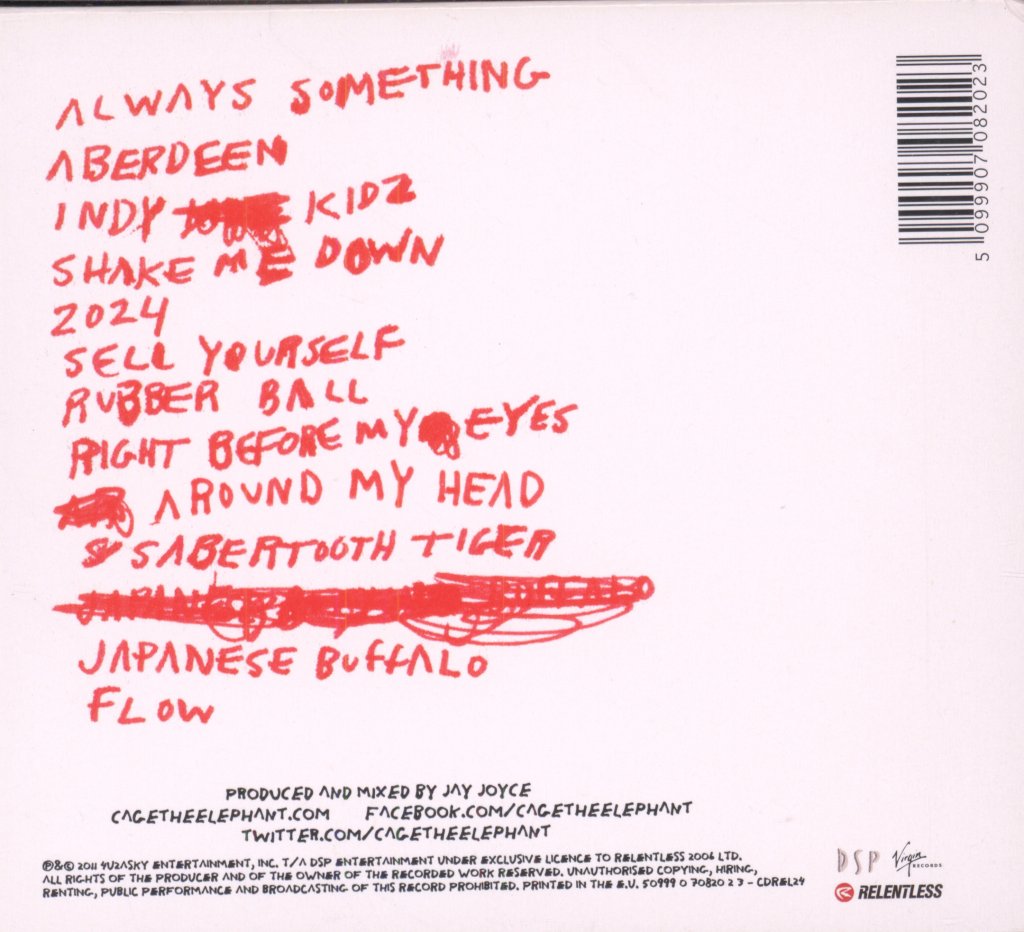 ALWAYS SOMETHING
ABERDEEN
INDY KIDZ
SHAKE ME DOWN
2024
SELL YOURSELF
RUBBER BALL
RIGHT BEFORE MY EYES
AROUND MY HEAD
SABERTOOTH TIGER
JAPANESE BUFFALO
FLOW
PRODUCED AND MIXED BY JAY JOYCE
CAGETHEELEPHANT.COM FACEBOOK.COM/CAGETHEELEPHANT
TWITTER.COM/CAGETHEELEPHANT
℗&© 2011 4U2ASKY ENTERTAINMENT, INC. T/A DSP ENTERTAINMENT UNDER EXCLUSIVE LICENCE TO RELENTLESS 2006 LTD.
ALL RIGHTS OF THE PRODUCER AND OF THE OWNER OF THE RECORDED WORK RESERVED. UNAUTHORISED COPYING, HIRING,
RENTING, PUBLIC PERFORMANCE AND BROADCASTING OF THIS RECORD PROHIBITED. PRINTED IN THE E.U. 50999 0 70820 2 3 - CDREL24
5 099907 082023
DSP Virgin RECORDS
RELENTLESS